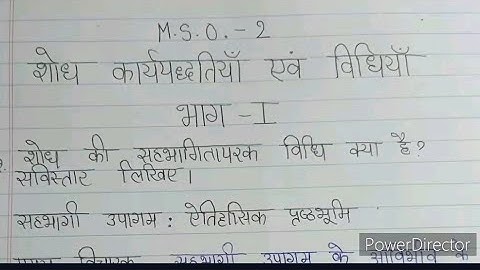 M.S.O. - 2
शोध कार्यपद्धतियाँ एवं विधियाँ
भाग - I
शोध की सहभागितापरक विधि क्या है?
सविस्तार लिखिए।
सहभागी उपागम : ऐतिहासिक पृष्ठभूमि
विचारक सहभागी उपागम के आविर्भाव
PowerDirector